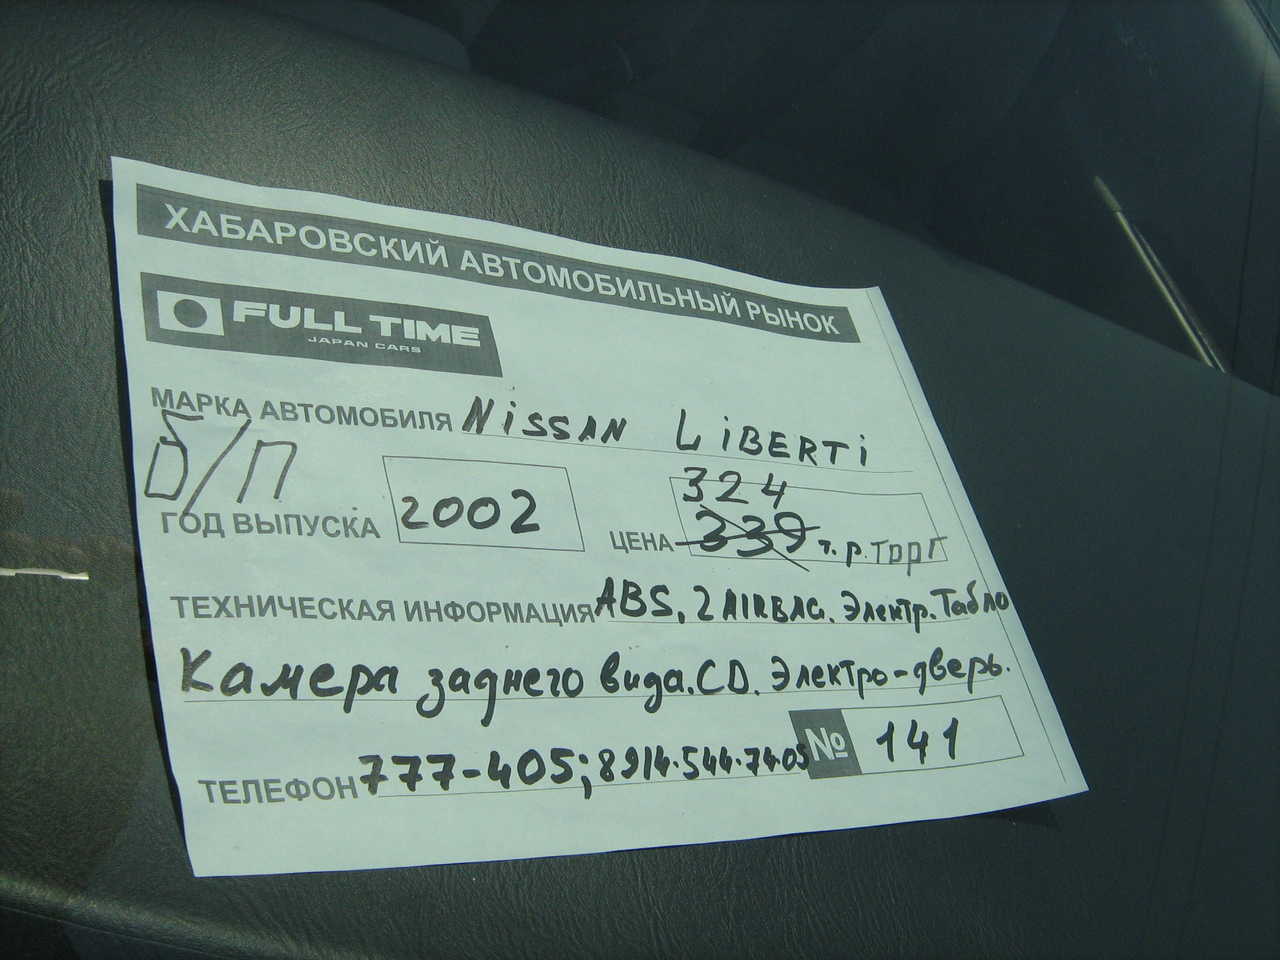 ХАБАРОВСКИЙ АВТОМОБИЛЬНЫЙ РЫНОК
FULL TIME
JAPAN CARS
МАРКА АВТОМОБИЛЯ NiSSAN LiBERTi
б/п
324
ГОД ВЫПУСКА 2002 ЦЕНА 339 т.р. торг
ТЕХНИЧЕСКАЯ ИНФОРМАЦИЯ ABS, 2 AIRBAG. Электр. Табло
Камера заднего вида. CD. Электро-дверь.
ТЕЛЕФОН 777-405; 8914.544.7405 № 141